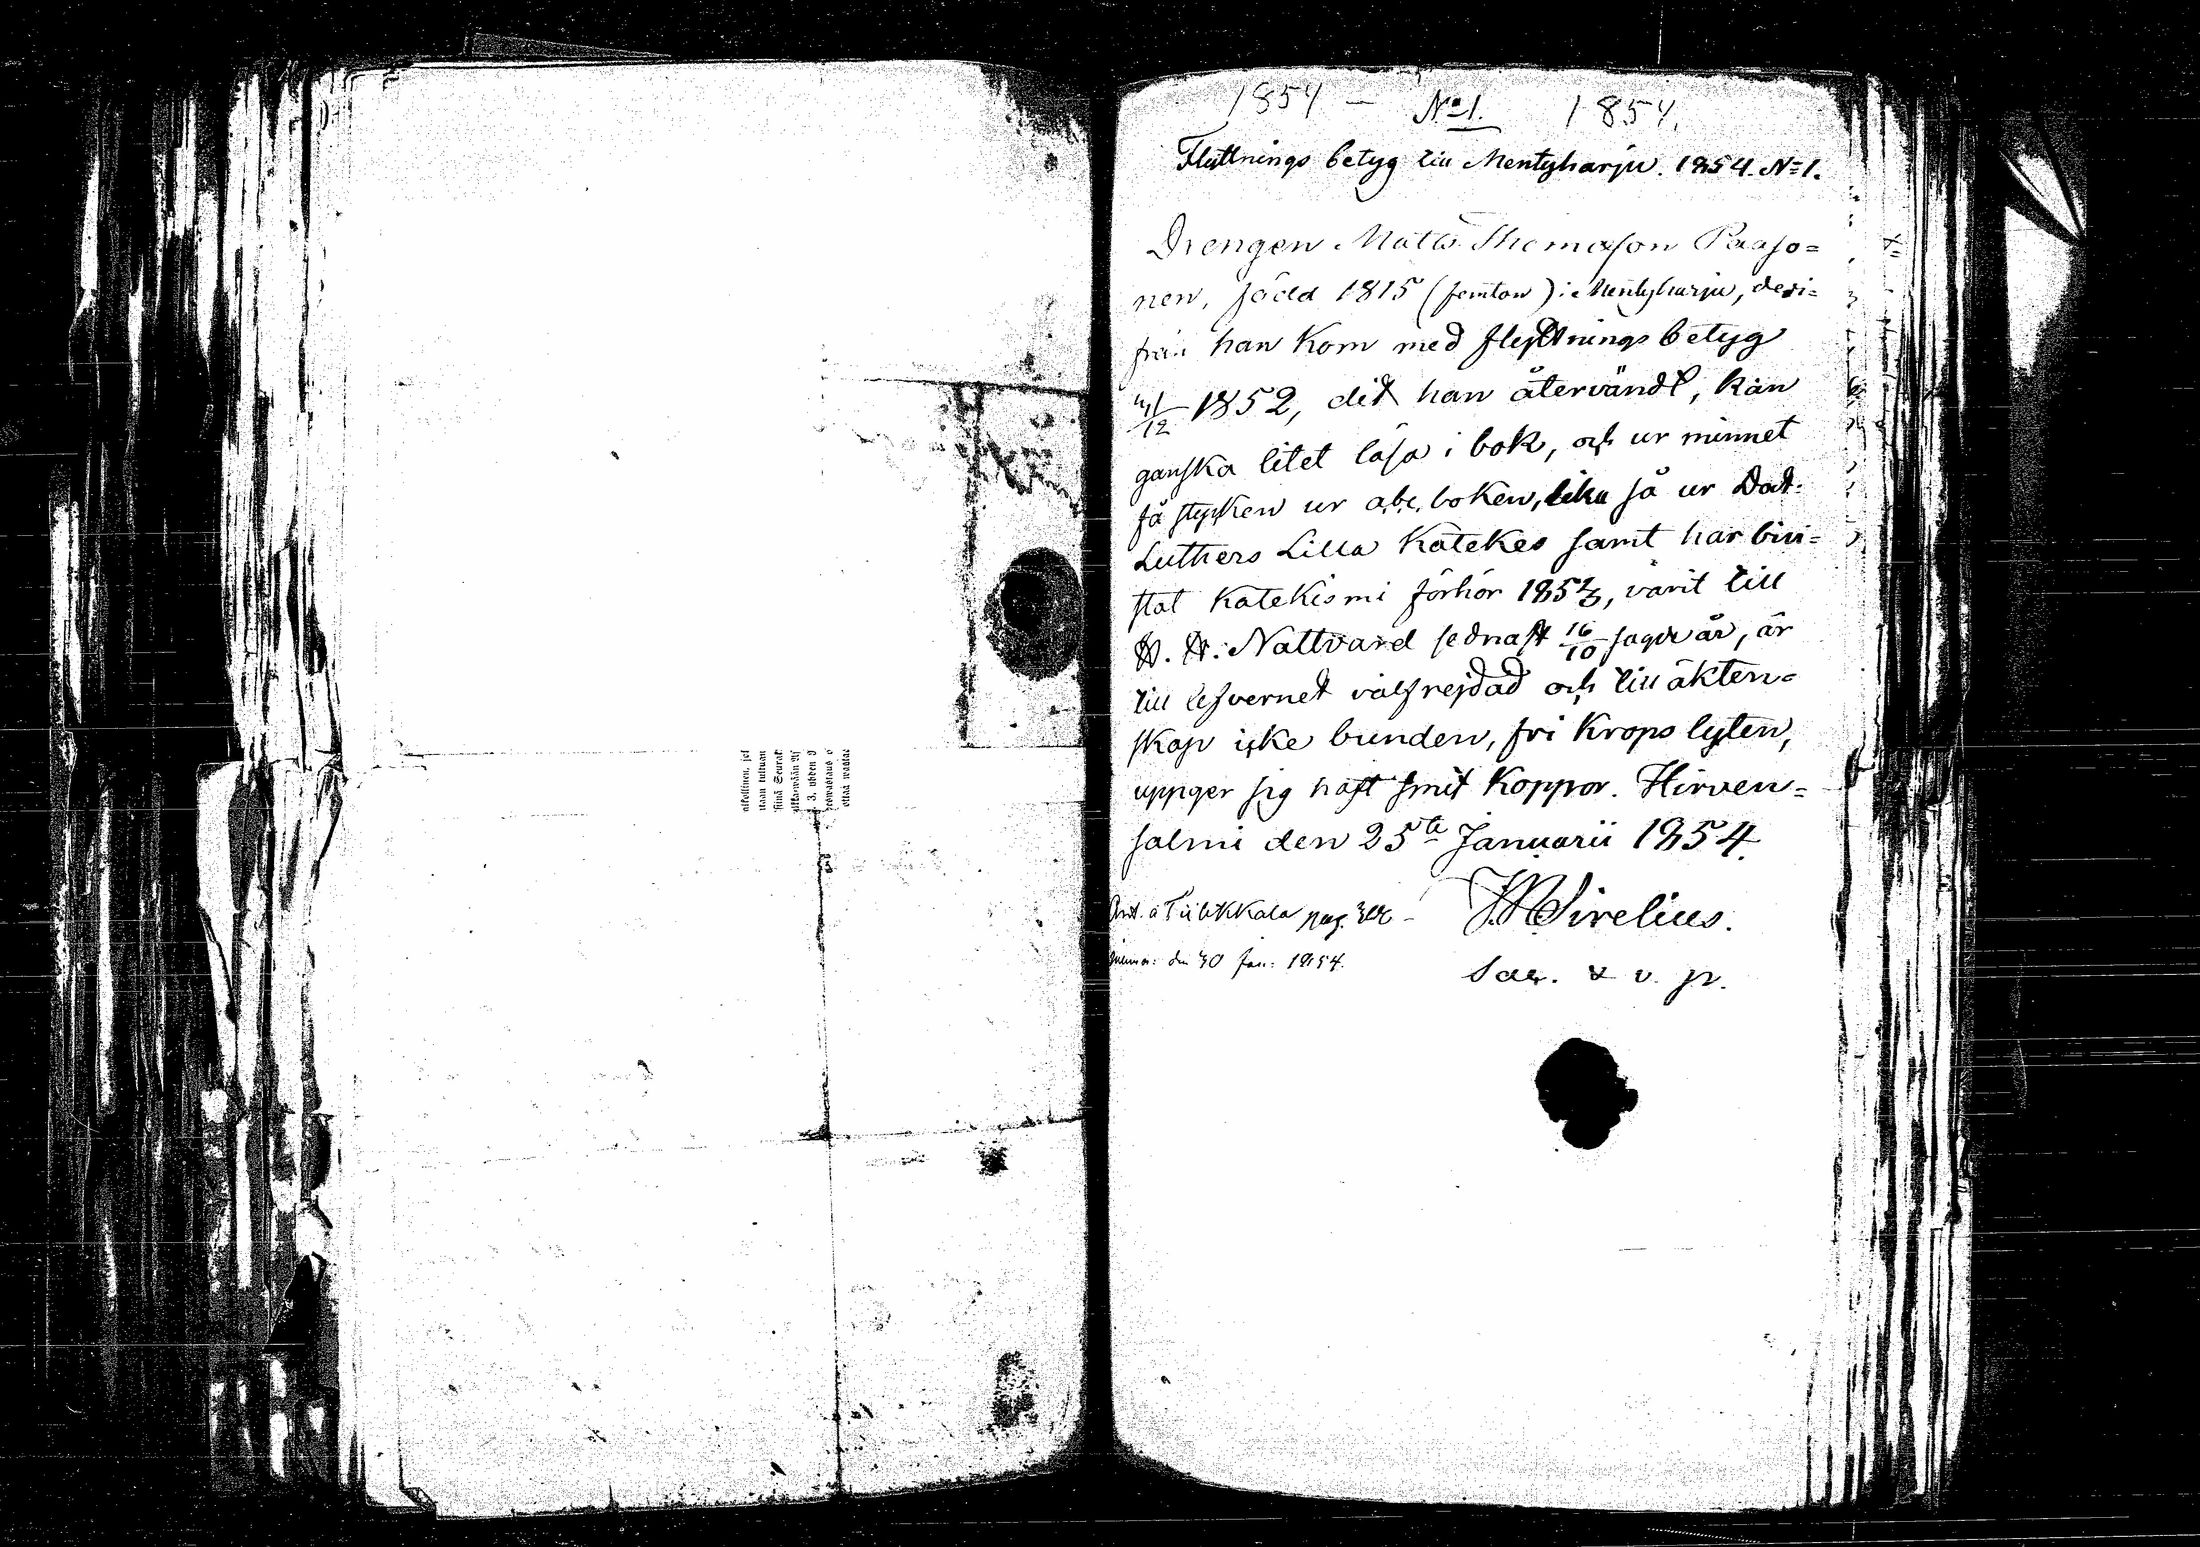 1854 — No 1. 1854.
Flyttnings betyg till Mentyharju. 1854. No 1.
Drengen Matts Thomasson Paaso=
nen, född 1815 (femton) i Mentyharju, deri=
från han kom med flyttnings betyg
1852, dit han återvändt, kan
ganska litet läsa i bok, och ur minnet
få stycken ur abc, boken, lika så ur Dockt.
Luthers Lilla Katekes samt har bivi=
stat Katekismi förhör 1852/3, varit till
H. H. Nattvard sednast 16/10 sagde år, är
till lefvernet välfrejdad och till äkten=
skap icke bunden, fri Krops lyten,
uppger sig haft smit Koppor. Hirven=
salmi den 25te Januarii 1854.
JMSirelius.
Sac. & v. p.
Ant. å Tiilikkala pag.
den 30 Jan: 1854.